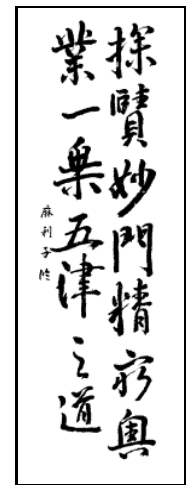 探賾妙門精窮奧
業一乘五律之道
麻利子臨